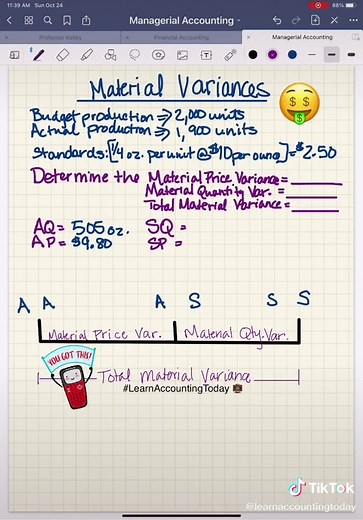 11:39 AM Sun Oct 24
88%
Managerial Accounting
Professor Notes
Financial Accounting
Managerial Accounting
Material Variances
Budget production ⇒ 2,000 units
Actual production ⇒ 1,900 units
Standards: [1/4 oz. per unit @ $10 per ounce] = $2.50
Determine the Material Price Variance = ______
Material Quantity Var. = ______
Total Material Variance = ______
AQ = 505 oz. SQ =
AP = $9.80 SP =
A A A S S S
Material Price Var. Material Qty. Var.
YOU GOT THIS!
Total Material Variance
#LearnAccountingToday
TikTok
@learnaccountingtoday